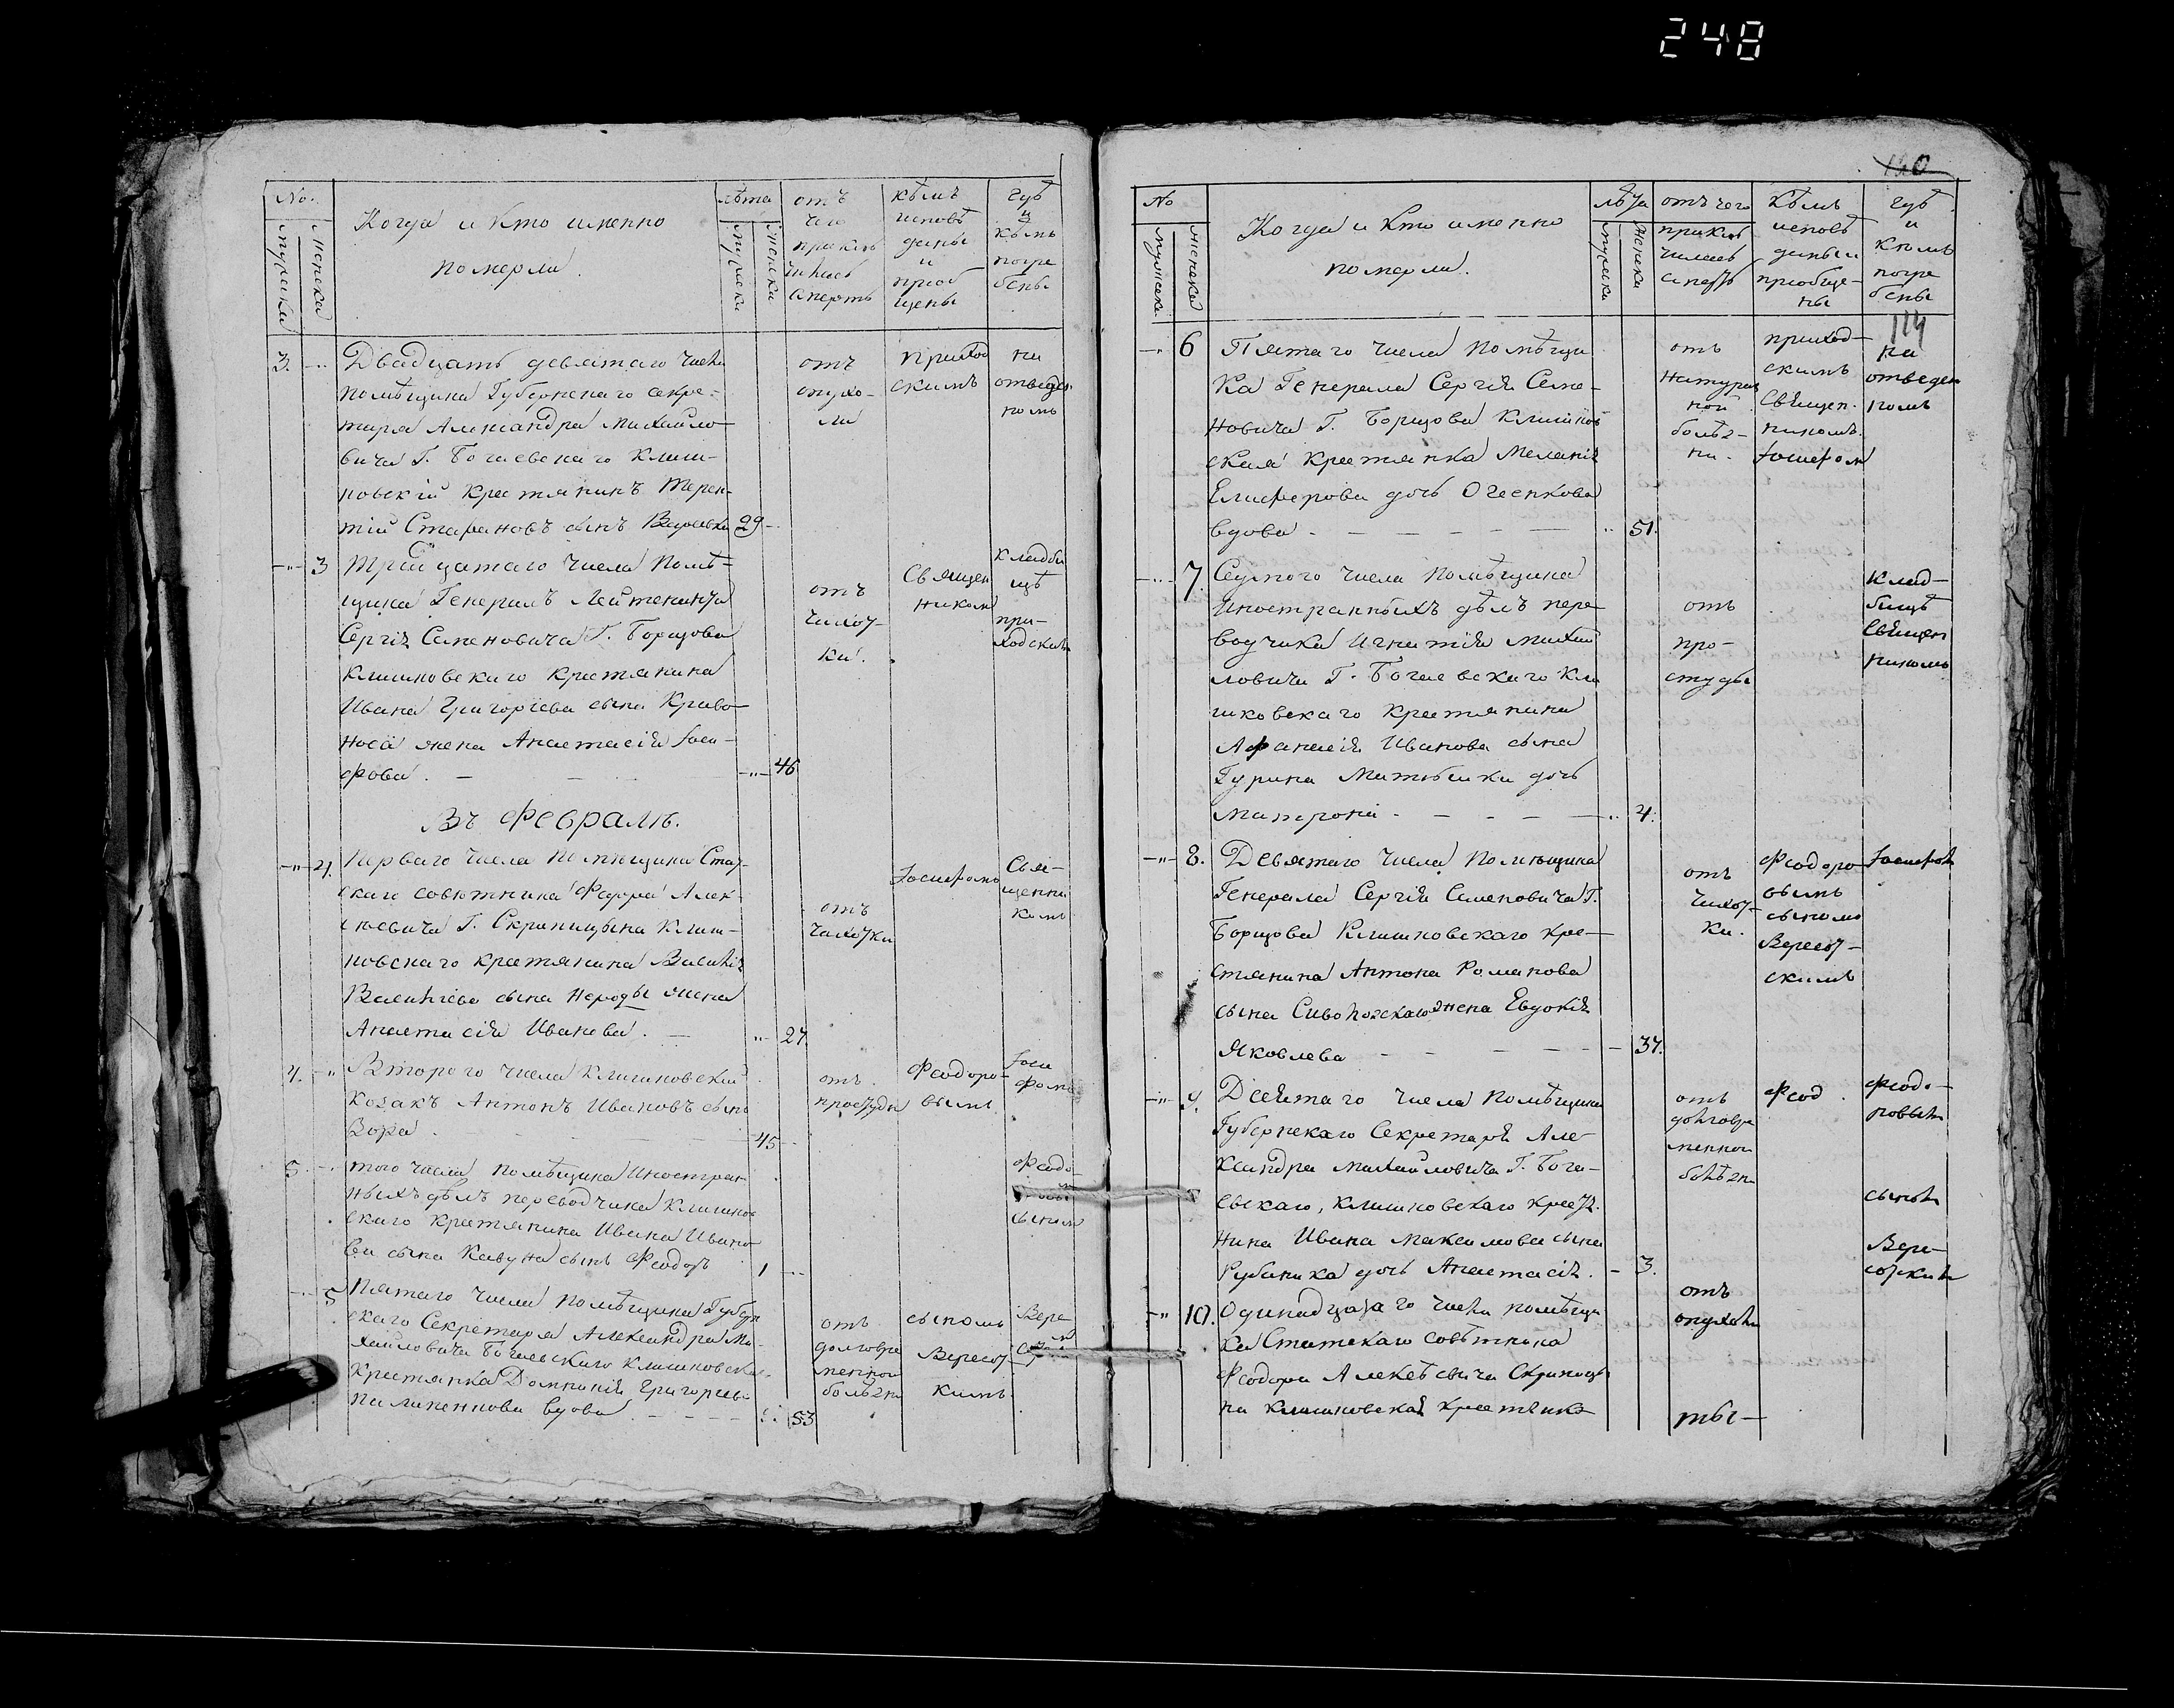 248
No.
мужеска
женска
Когда и кто именно
померли.
лѣта
мужеска
женска
отъ
чего
приклю
чилась
смерть
кѣмъ
исповѣ
даны
и
приоб
щены
гдѣ
и
кѣмъ
погре
бены
3.
Двадцать девятаго числа
помѣщика Губернскаго секре=
таря Александра Михайло
вича Г. Богаевскаго Клиш-
ковскій крестянинъ Терен-
тій сынъ
29
отъ
опухо-
ли
приход
скимъ
на
отведен
номъ
3
Тритцатаго числа помѣ-
щика Генералъ Лейтенанта
Сергія Семеновича Г. Борщова
Клишковскаго крестянина
Ивана Григоріева сына Криво
носа жена Анастасія Іоси-
фова.
46
отъ
чахот-
ки.
Священ
никомъ
кладби
щѣ
при-
ходскимъ
Въ Февралѣ.
4.
Перваго числа помѣщика Стат-
скаго совѣтника Феодора Алек-
сѣевича Г. Скрипицына Клиш-
ковскаго крестянина Василія
Василіева сына Негоды жена
Анастасія Иванова.
27.
отъ
чахотки
Іосифомъ
Свя-
щенни
комъ
4.
Втораго числа Клишковскій
Козакъ Антонъ Ивановъ сынъ
Вора
45
отъ
простуды
Феодоро-
вымъ
Іоси
фомъ
5.
того числа помѣщика Иностран
ныхъ дѣлъ переводчика Клишков
скаго крестянина Ивана Ивано
ва сына Кавуна сынъ Феодоръ
1
Феодо-
сыномъ
5
Пятаго числа помѣщика Губерн
скаго Секретаря Александра Ми-
хайловича Богаевскаго Клишковская
крестянка Домникія Григорьева
вдова
53
отъ
долговре
менной
болѣзни
сыномъ
Вересот
кимъ.
Вере
140
No
мужеска
женска
Когда и кто именно
померли.
лѣта
мужеска
женска
отъ чего
приклю
чилась
смерть
Кѣмъ
исповѣ
даны и
приобще-
ны
гдѣ
и
кѣмъ
погре
бены
114
6
Пятаго числа помѣщи
ка Генерала Сергія Семе-
новича Г. Борщова Клишков
ская крестянка Меланія
Елиферова дочь Огеенкова
вдова
51.
отъ
натурал
ной
болѣз-
ни.
приход-
скимъ
Священ-
никомъ
Іосифомъ
на
отведен
номъ
7.
Седмого числа помѣщика
Иностранныхъ дѣлъ пере
водчика Игнатія Михай
ловича Г. Богаевскаго Кли
шковскаго крестянина
Афанасія Иванова сына
Гурина дочь
Матрона
4.
отъ
про-
студы
клад-
бищѣ
Священ
никомъ
8.
Девятаго числа помѣщика
Генерала Сергія Семеновича Г.
Борщова Клишковскаго кре-
стянина Антона Романова
сына жена Евдокія
Яковлева
37.
отъ
чахот-
ки.
Феодоро
вымъ
сыномъ
Вересот-
скимъ
Іосифомъ
9.
Десятаго числа помѣщика
Губернскаго Секретаря Але
ксандра Михайловича Г. Бога-
евскаго, Клишковскаго крест.
нина Ивана Максимова сына
Рубаника дочь Анастасія.
3.
отъ
долговре
менной
болѣзни
Феод
Феодо-
ровымъ
сыномъ
10.
Одинадцатаго числа помѣщи
ка Статскаго совѣтника
Феодора Алексѣевича Скрипицы
на Клишковская крестянка
отъ
опухоли
Вере-
соткимъ